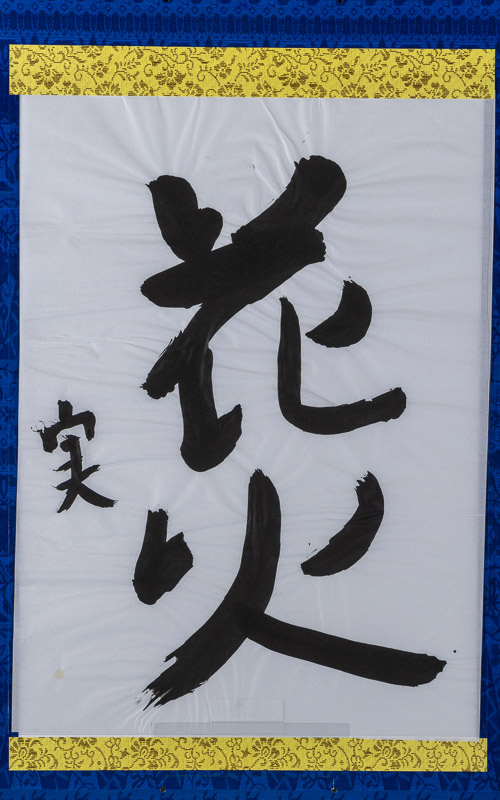 花火
実